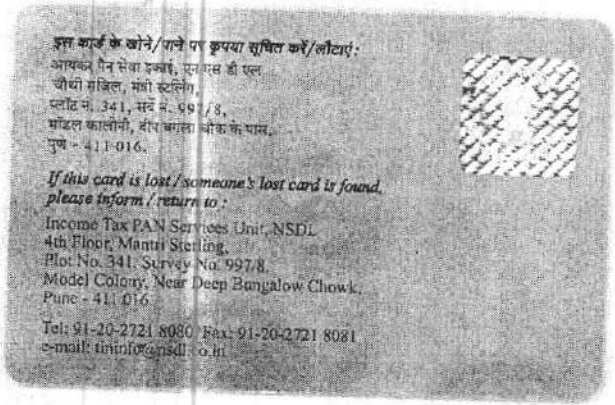 इस कार्ड के खोने/पाने पर कृपया सूचित करें/लौटाएं:
आयकर पैन सेवा इकाई, एन एस डी एल
चौथी मंजिल, मंत्री स्टर्लिंग,
प्लॉट नं. 341, सर्वे नं. 997/8,
मॉडल कालोनी, दीप बंगला चौक के पास,
पुणे - 411 016.
If this card is lost / someone's lost card is found,
please inform / return to :
Income Tax PAN Services Unit, NSDL
4th Floor, Mantri Sterling,
Plot No. 341, Survey No. 997/8,
Model Colony, Near Deep Bungalow Chowk,
Pune - 411 016
Tel: 91-20-2721 8080 Fax: 91-20-2721 8081
e-mail: tininfo@nsdl.co.in